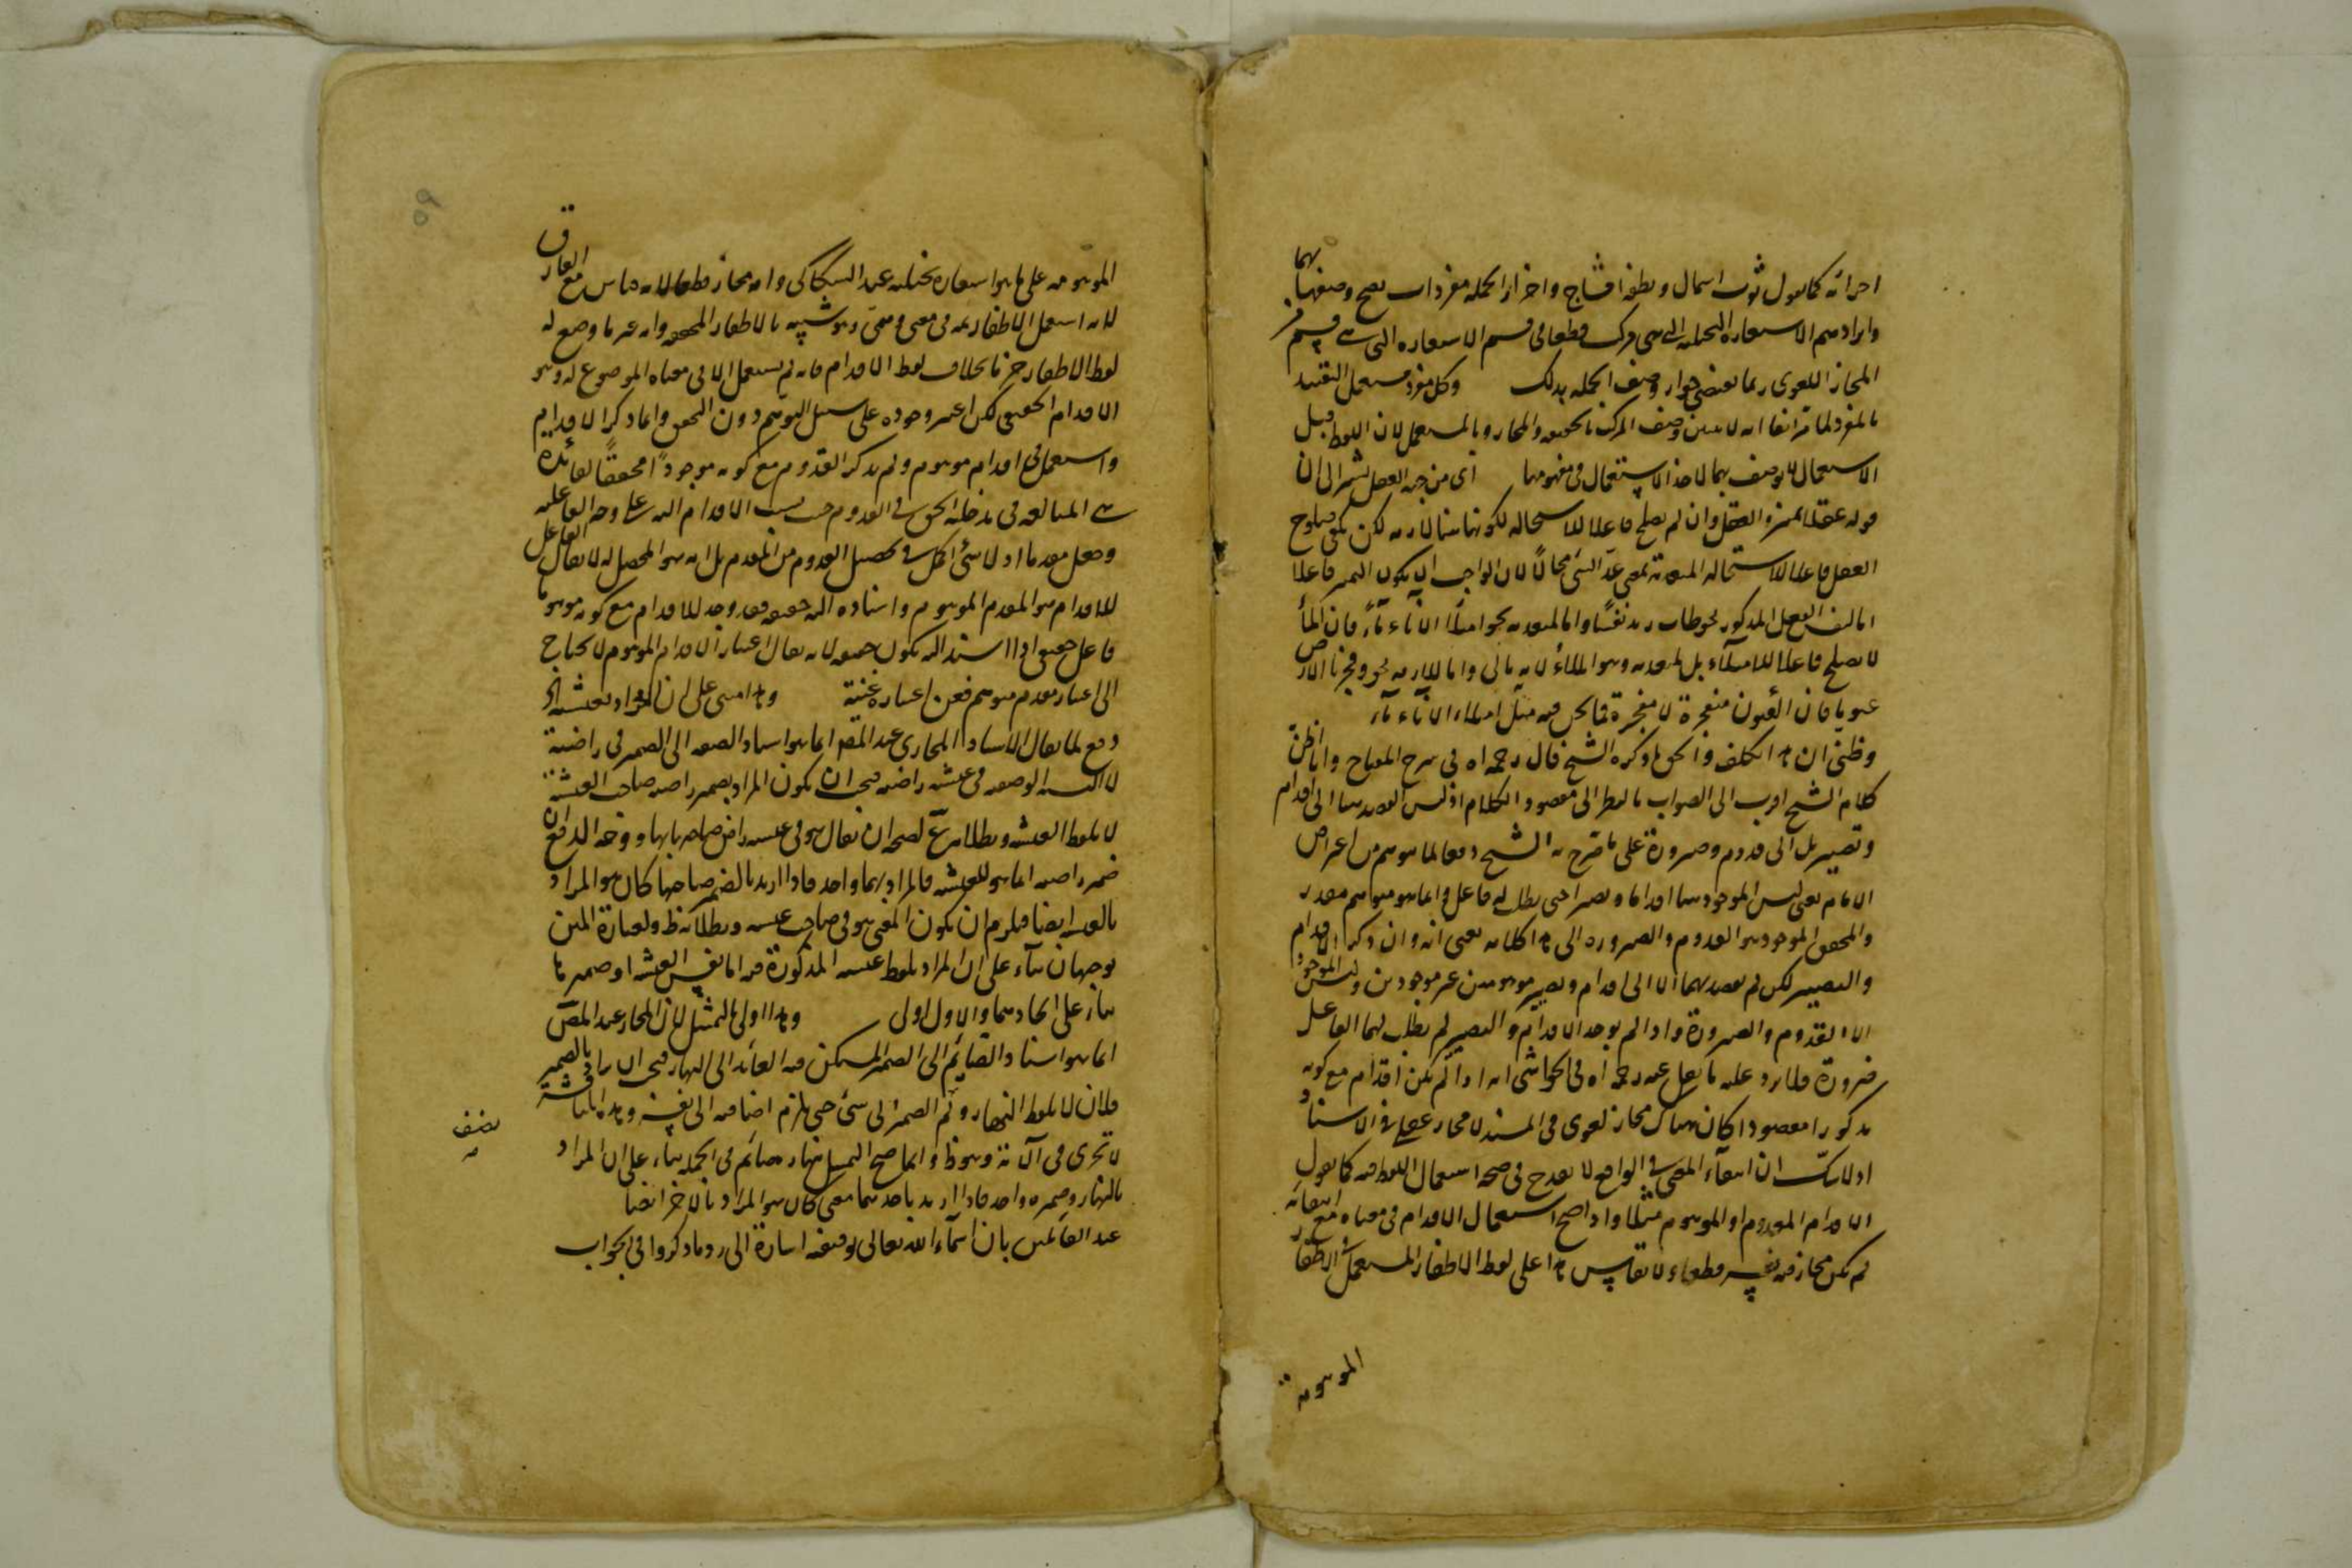 اجزائه كما يقول ثوب اسمال ونطفة امشاج واجزاء الجملة مفردات يصح وصفها بهما
وايرادهم الاستعارة التخييلية التى هى مركب قطعا فى قسم الاستعارة التى هى قسم من
المجاز اللغوى ربما يقتضى جواز وصف الجملة بذلك وكل مفرد مستعمل التقييد
بالمفرد لما مر انفا انه لا يبين وصف المركب بالحقيقة والمجاز وبالمستعمل لان اللفظ قبل
الاستعمال لا يوصف بهما لاخذ الاستعمال فى مفهومهما اى من جهة العقل يشير الى ان
قوله عقلا تمييز والعقل وان لم يصلح فاعلا للاستحالة لكونها هنا لازمة لكن يكفى صلوح
العقل فاعلا للاستحالة المتعدية بمعنى عد الشئ محالا لان الواجب ان يكون التمييز فاعلا
اما لنفس الفعل المذكور نحو طاب زيد نفسا واما لمتعديه نحو امتلأ الاناء ماء فان الماء
لا يصلح فاعلا للامتلاء بل لمتعديه وهو الملأ لانه مالى واما للازمه نحو وفجرنا الارض
عيونا فان العيون منفجرة لا مفجرة فما نحن فيه مثل امتلاء الاناء ماء
وظنى ان هذا تكلف والحق ما ذكره الشيخ قال رحمه الله فى شرح المفتاح وانا اظن
كلام الشيخ اقرب الى الصواب بالنظر الى مقصود الكلام اذ ليس القصد هنا الى اقدام
وتصيير بل الى قدوم وصيرورة على ما صرح به الشيخ دفعا لما يتوهم من اعتراض
الامام يعنى ليس الموجود هنا اقداما وتصييرا حتى يطلب له فاعل وانما هو متوهم مقدر
والمحقق الموجود هو القدوم والصيرورة الى هنا كلامه يعنى انه وان ذكر الاقدام
والتصيير لكن لم يقصد بهما الا الى اقدام وتصيير موهومين غير موجودين وليس الموجود
الا القدوم والصيرورة واذا لم يوجد الاقدام والتصيير لم يطلب لهما الفاعل
ضرورة فلا يرد عليه ما نقل عنه رحمه الله فى الحواشى انه اذا لم يكن اقدام مع كونه
مذكورا مقصودا كان هناك مجاز لغوى فى المسند لا مجاز عقلى فى الاسناد
اذ لا شك ان انتفاء المعنى فى الواقع لا يقدح فى صحة استعمال اللفظ فيه كما يقول
الاقدام المعدوم او الموهوم مثلا واذا صح استعمال الاقدام فى معناه مع انتفائه
لم يكن مجاز فيه نفسه قطعا ولا يقاس هذا على لفظ الاظفار المستعمل فى الاظفار
الموهومة
٥٩
الموهومة على ما هو استعارة تخييلية عند السكاكى وانه مجاز قطعا لانه قياس مع الفارق
لانه استعمل الاظفار ثمة فى معنى وهمى وهو شبيه بالاظفار المحققة وانه غير ما وضع له
لفظ الاظفار جزما بخلاف لفظ الاقدام فانه لم يستعمل الا فى معناه الموضوع له وهو
الاقدام الحقيقى لكن اعتبر وجوده على سبيل التوهم دون التحقق وانما ذكر الاقدام
واستعمل فى اقدام موهوم ولم يذكر القدوم مع كونه موجودا محققا لفائدة
هى المبالغة فى مدخلية الحق فى القدوم حيث نسب الاقدام اليه على وجه الفاعلية
وجعل مقدما اذ لا شئ اكمل فى تحصيل القدوم من المقدم بل انه هو المحصل له لا يقال الفاعل
للاقدام هو المقدم الموهوم واسناده اليه حقيقة فقد وجد للاقدام مع كونه موهوما
فاعل حقيقى اذا اسند اليه يكون حقيقة لانه يقال اعتبار الاقدام الموهوم لا يحتاج
الى اعتبار مقدم متوهم فعن اعتباره غنية وهذا مبنى على ان المراد بعيشة الخ
دفع لما يقال الاسناد المجازى عند المص انما هو اسناد الصفة الى الضمير فى راضية
لا النسبة الوصفية فى عيشة راضية فيجب ان يكون المراد بضمير راضية صاحب العيشة
لا بلفظ العيشة وبطلانه ممنوع لصحة ان يقال هو فى عيشة راض صاحبها بها ووجه الدفع ان
ضمير راضية انما هو للعيشة فالمراد بهما واحد فاذا اريد بالضمير صاحبها كان هو المراد
بالعيشة ايضا فيلزم ان يكون المعنى هو فى صاحب عيشة وبطلانه ظ ولعبارة المتن
توجيهان بناء على ان المراد بلفظ عيشة المذكورة فيه اما نفس العيشة او ضميرها
بناء على اتحادهما والاول اولى وهذا اولى بالتمثيل لان المجاز عند المص
انما هو اسناد الصايم الى الضمير المستكن فيه العائد الى النهار فيجب ان يراد بالضمير
فلان لا بلفظ النهار ولم الضمير الى شئ حتى يلزم اضافته الى نفسه وهذه المناقشة
لا تجرى فى الآية وهو ظ وانما صح التمثيل بنهاره صائم فى الجملة بناء على ان المراد
بالنهار وضميره واحد فاذا اريد باحدهما معنى كان هو المراد بالاخر ايضا
عند القائلين بان اسماء الله تعالى توقيفية اشارة الى رد ما ذكروا فى الجواب